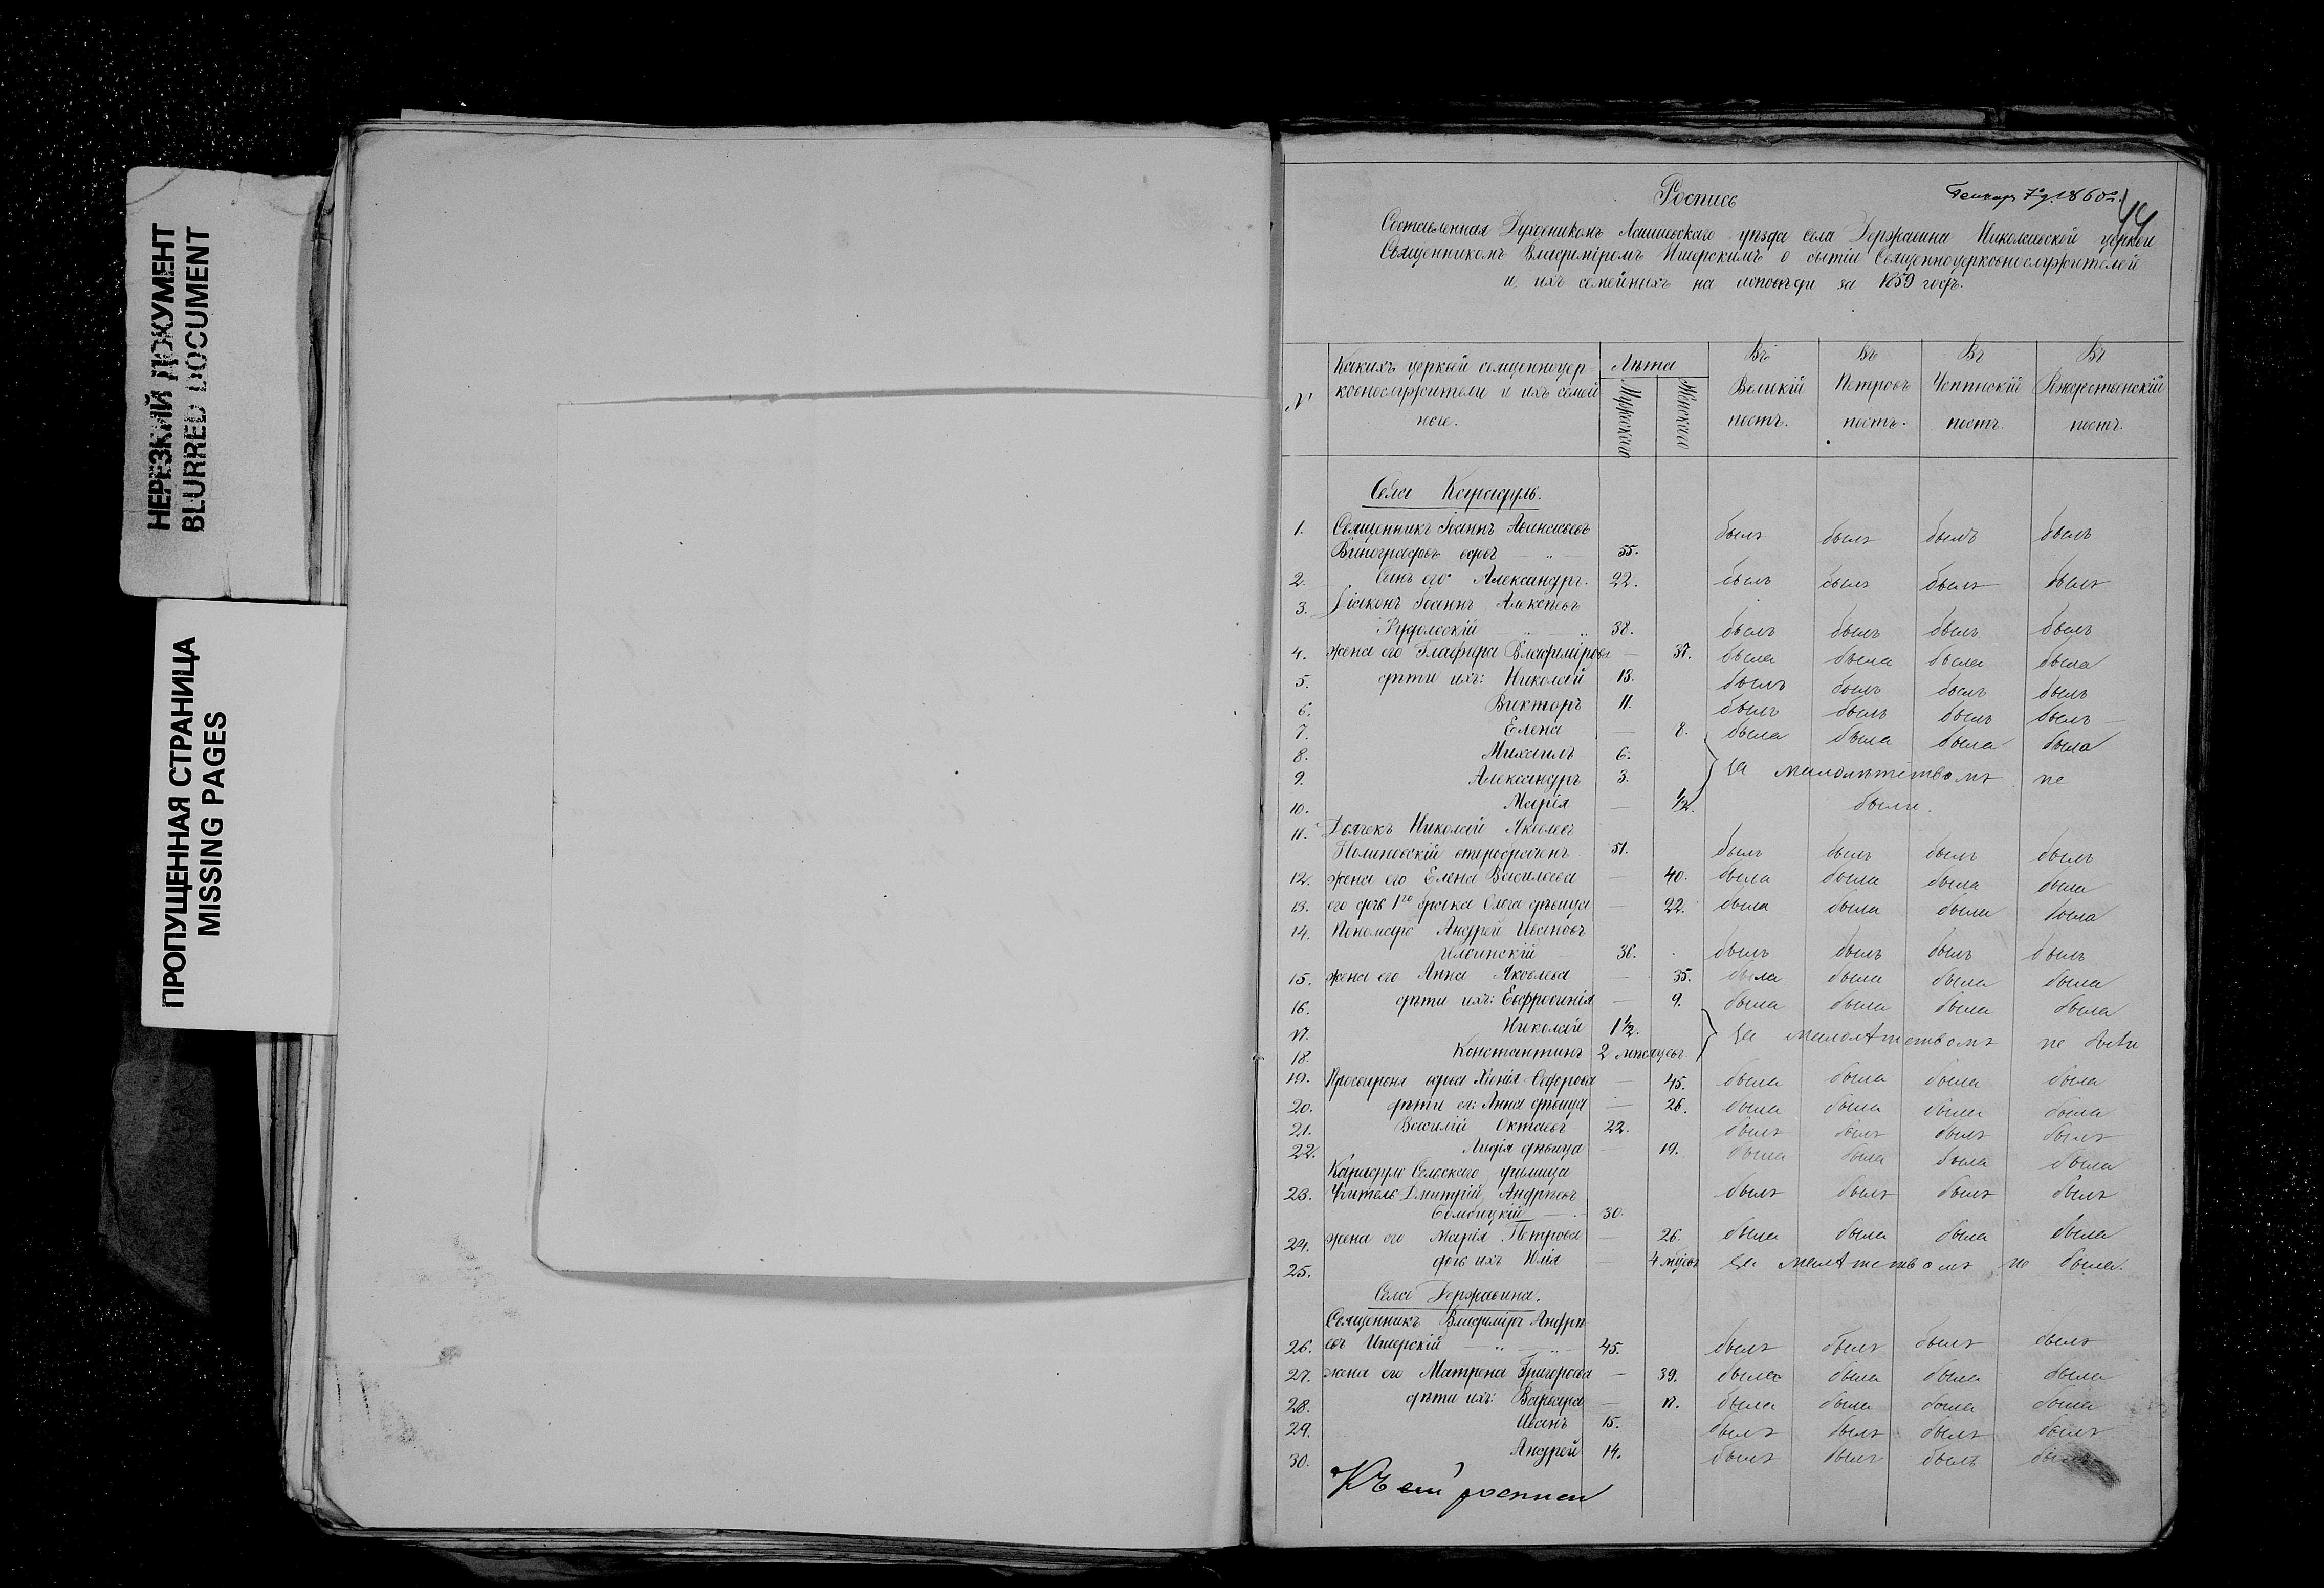 НЕРЕЗКИЙ ДОКУМЕНТ
BLURRED DOCUMENT
ПРОПУЩЕННАЯ СТРАНИЦА
MISSING PAGES
Роспись
Генваря 7 д. 1860 г.
44
Составленная Духовникомъ Лаишевскаго уѣзда села Державина Николаевской церкви
Священникомъ Владиміромъ Ижерскимъ о бытіи Священноцерковнослужителей
и ихъ семейныхъ на исповѣди за 1859 годъ.
№ Какихъ церквей священноцер- Лѣта Въ Въ Въ Въ
ковнослужители и ихъ семей Мужескаго Женскаго Великій Петровъ Успѣнскій Рождественскій
ные. постъ. постъ. постъ. постъ.
Села Карадуль.
1. Священникъ Іоаннъ Аѳанасьевъ
Виноградовъ вдовъ — „ — 55. былъ былъ былъ былъ
2. Сынъ его Александръ. 22. былъ былъ былъ былъ
3. Діаконъ Іоаннъ Алексѣевъ
Рудольскій „ „ 38. былъ былъ былъ былъ
4. жена его Глафира Владимірова — 37. была была была была
5. дѣти ихъ: Николай 13. былъ былъ былъ былъ
6. Викторъ 11. былъ былъ былъ былъ
7. Елена — 8. была была была была
8. Михаилъ 6.
9. Александръ 3. За малолѣтствомъ не
10. Марія — 1/2. были.
11. Дьячекъ Николай Яковлевъ
Полиновскій второбраченъ 51. былъ былъ былъ былъ
12. жена его Елена Васильева — 40. была была была была
13. его дочь 1го брака Ольга дѣвица — 22. была была была была
14. Пономарь Андрей Ивановъ
Ильинскій — 36. былъ былъ былъ былъ
15. жена его Анна Яковлева — 35. была была была была
16. дѣти ихъ: Евфросинія — 9. была была была была
17. Николай 1 1/2. За малолѣтствомъ не были
18. Константинъ 2 мѣсяцевъ.
19. Просвирня вдова Хіонія Ѳедорова — 45. была была была была
20. дѣти ея: Анна дѣвица — 26. была была была была
21. Василій Октаевъ 22. былъ былъ былъ былъ
22. Лидія дѣвица — 19. была была была была
Карадуль Сельскаго училища
23. Учитель Дмитрій Андреевъ былъ былъ былъ былъ
30.
24. жена его Марія Петрова — 26. была была была была
25. дочь ихъ Юлія — 4 мѣсяц. За малолѣтствомъ не была.
Села Державина.
Священникъ Владиміръ Андре
26. евъ Ижерскій — „ — „ — 45. былъ былъ былъ былъ
27. жена его Матрона Григорьева — 39. была была была была
28. дѣти ихъ: Варвара — 17. была была была была
29. Иванъ 15. былъ былъ былъ былъ
30. Андрей 14. былъ былъ былъ былъ
Къ сей росписи